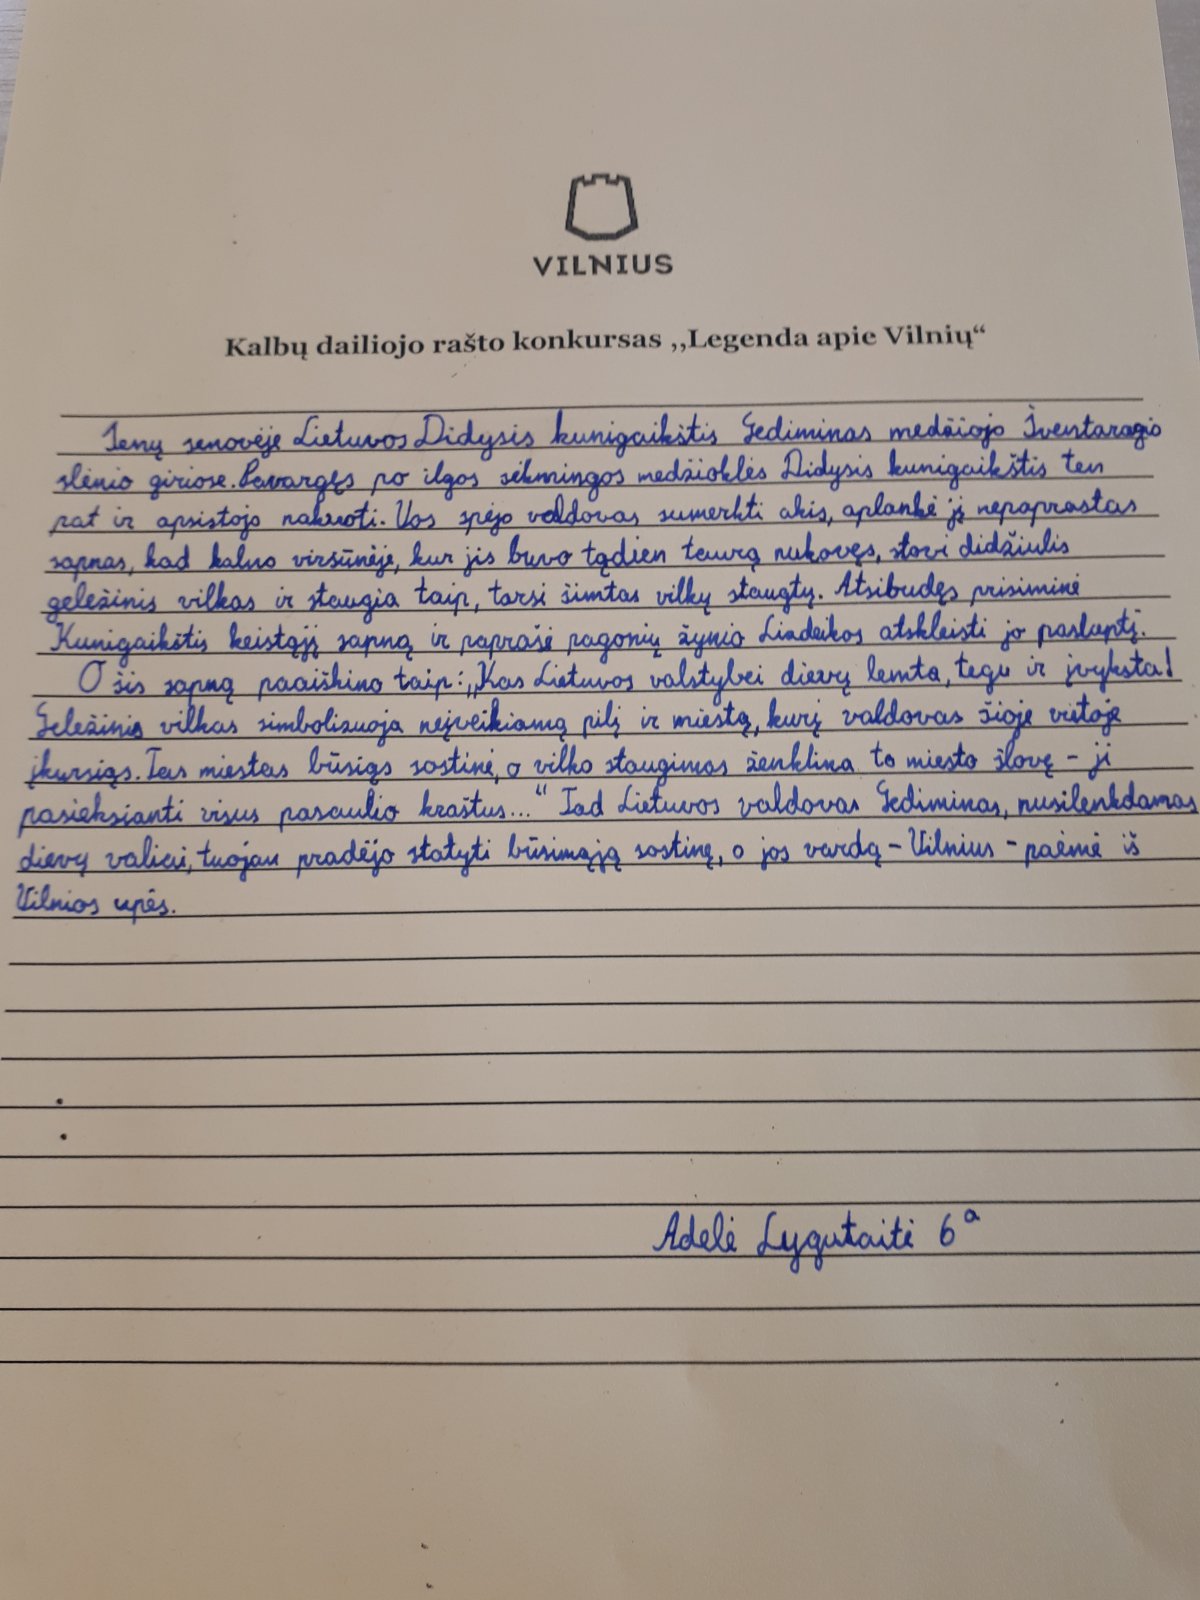 VILNIUS
Kalbų dailiojo rašto konkursas ,,Legenda apie Vilnių“
Senų senovėje Lietuvos Didysis kunigaikštis Gediminas medžiojo Šventaragio
slėnio giriose. Pavargęs po ilgos sėkmingos medžioklės Didysis kunigaikštis ten
pat ir apsistojo nakvoti. Vos spėjo valdovas sumerkti akis, aplankė jį nepaprastas
sapnas, kad kalno viršūnėje, kur jis buvo tądien taurą nukovęs, stovi didžiulis
geležinis vilkas ir staugia taip, tarsi šimtas vilkų staugtų. Atsibudęs prisiminė
Kunigaikštis keistąjį sapną ir paprašė pagonių žynio Lizdeikos atskleisti jo paslaptį.
O šis sapną paaiškino taip: „Kas Lietuvos valstybei dievų lemta, tegu ir įvyksta!
Geležinis vilkas simbolizuoja neįveikiamą pilį ir miestą, kurį valdovas šioje vietoje
įkursiąs. Tas miestas būsiąs sostinė, o vilko staugimas ženklina to miesto šlovę – ji
pasieksianti visus pasaulio kraštus...“ Tad Lietuvos valdovas Gediminas, nusilenkdamas
dievų valiai, tuojau pradėjo statyti būsimąją sostinę, o jos vardą – Vilnius – paėmė iš
Vilnios upės.
Adelė Lygutaitė 6ᵃ